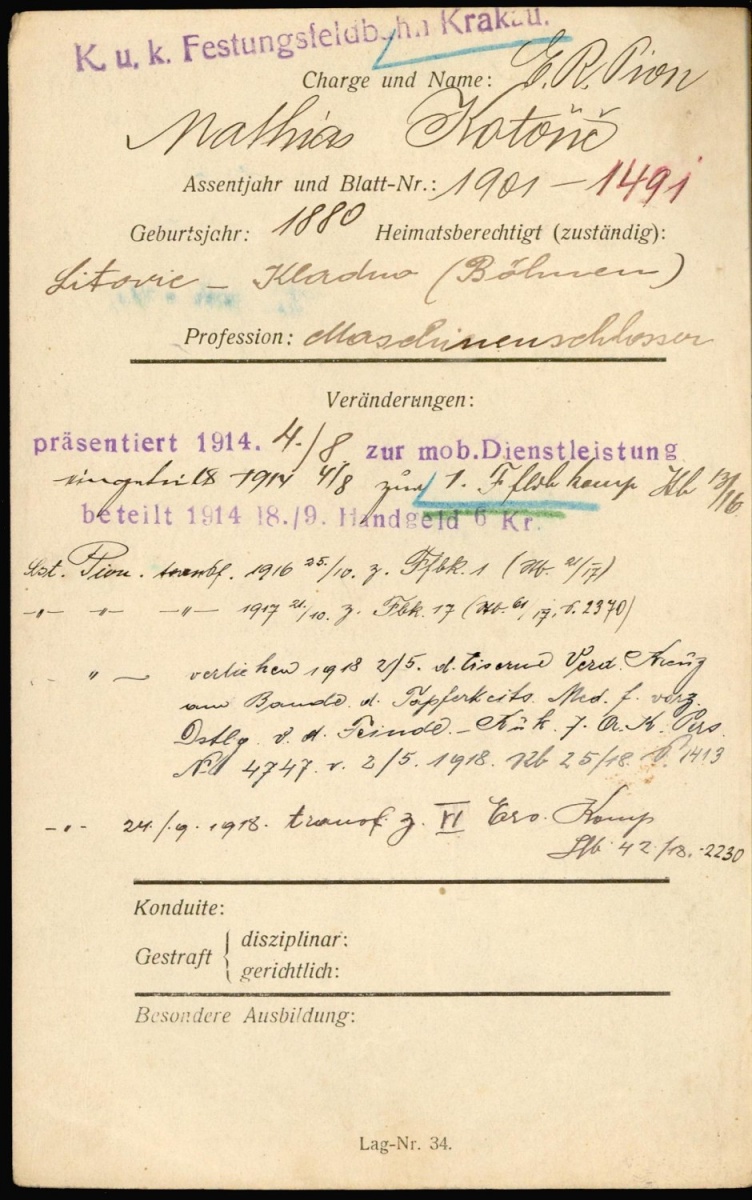 K. u. k. Festungsfeldbahn Krakau.
Charge und Name: E. R. Pion
Mathias
Assentjahr und Blatt-Nr.: 1901 — 1491
Geburtsjahr: 1880 Heimatsberechtigt (zuständig):
Litovic — Kladno (Böhmen)
Profession: Maschinenschlosser
Veränderungen:
präsentiert 1914. 4./8. zur mob. Dienstleistung
1914 4/8 zur 1. Kb 13/16
beteilt 1914 18./9. Handgeld 6 Kr.
Lst. Pion. transf. 1916 25/10. z. Ffbk. 1 ( 21/17)
-"- -"- -"- 1917 21/10. z. Fbk. 17 ( 61/17, P. 2370)
" — verliehen 1918 2/5. d. Eiserne Verd. Kreuz
am Bande d. Tapferkeits. Med. f. vorz.
Dstlg v. d. Feinde. — K. u. k. 7. A. K. Pers.
No 4747 v. 2/5. 1918. Kb 25/18 P. 1413
-"- 24./9. 1918. transf. z. VI Ers. Komp
42/18. -2230
Konduite:
Gestraft { disziplinar:
gerichtlich:
Besondere Ausbildung:
Lag-Nr. 34.